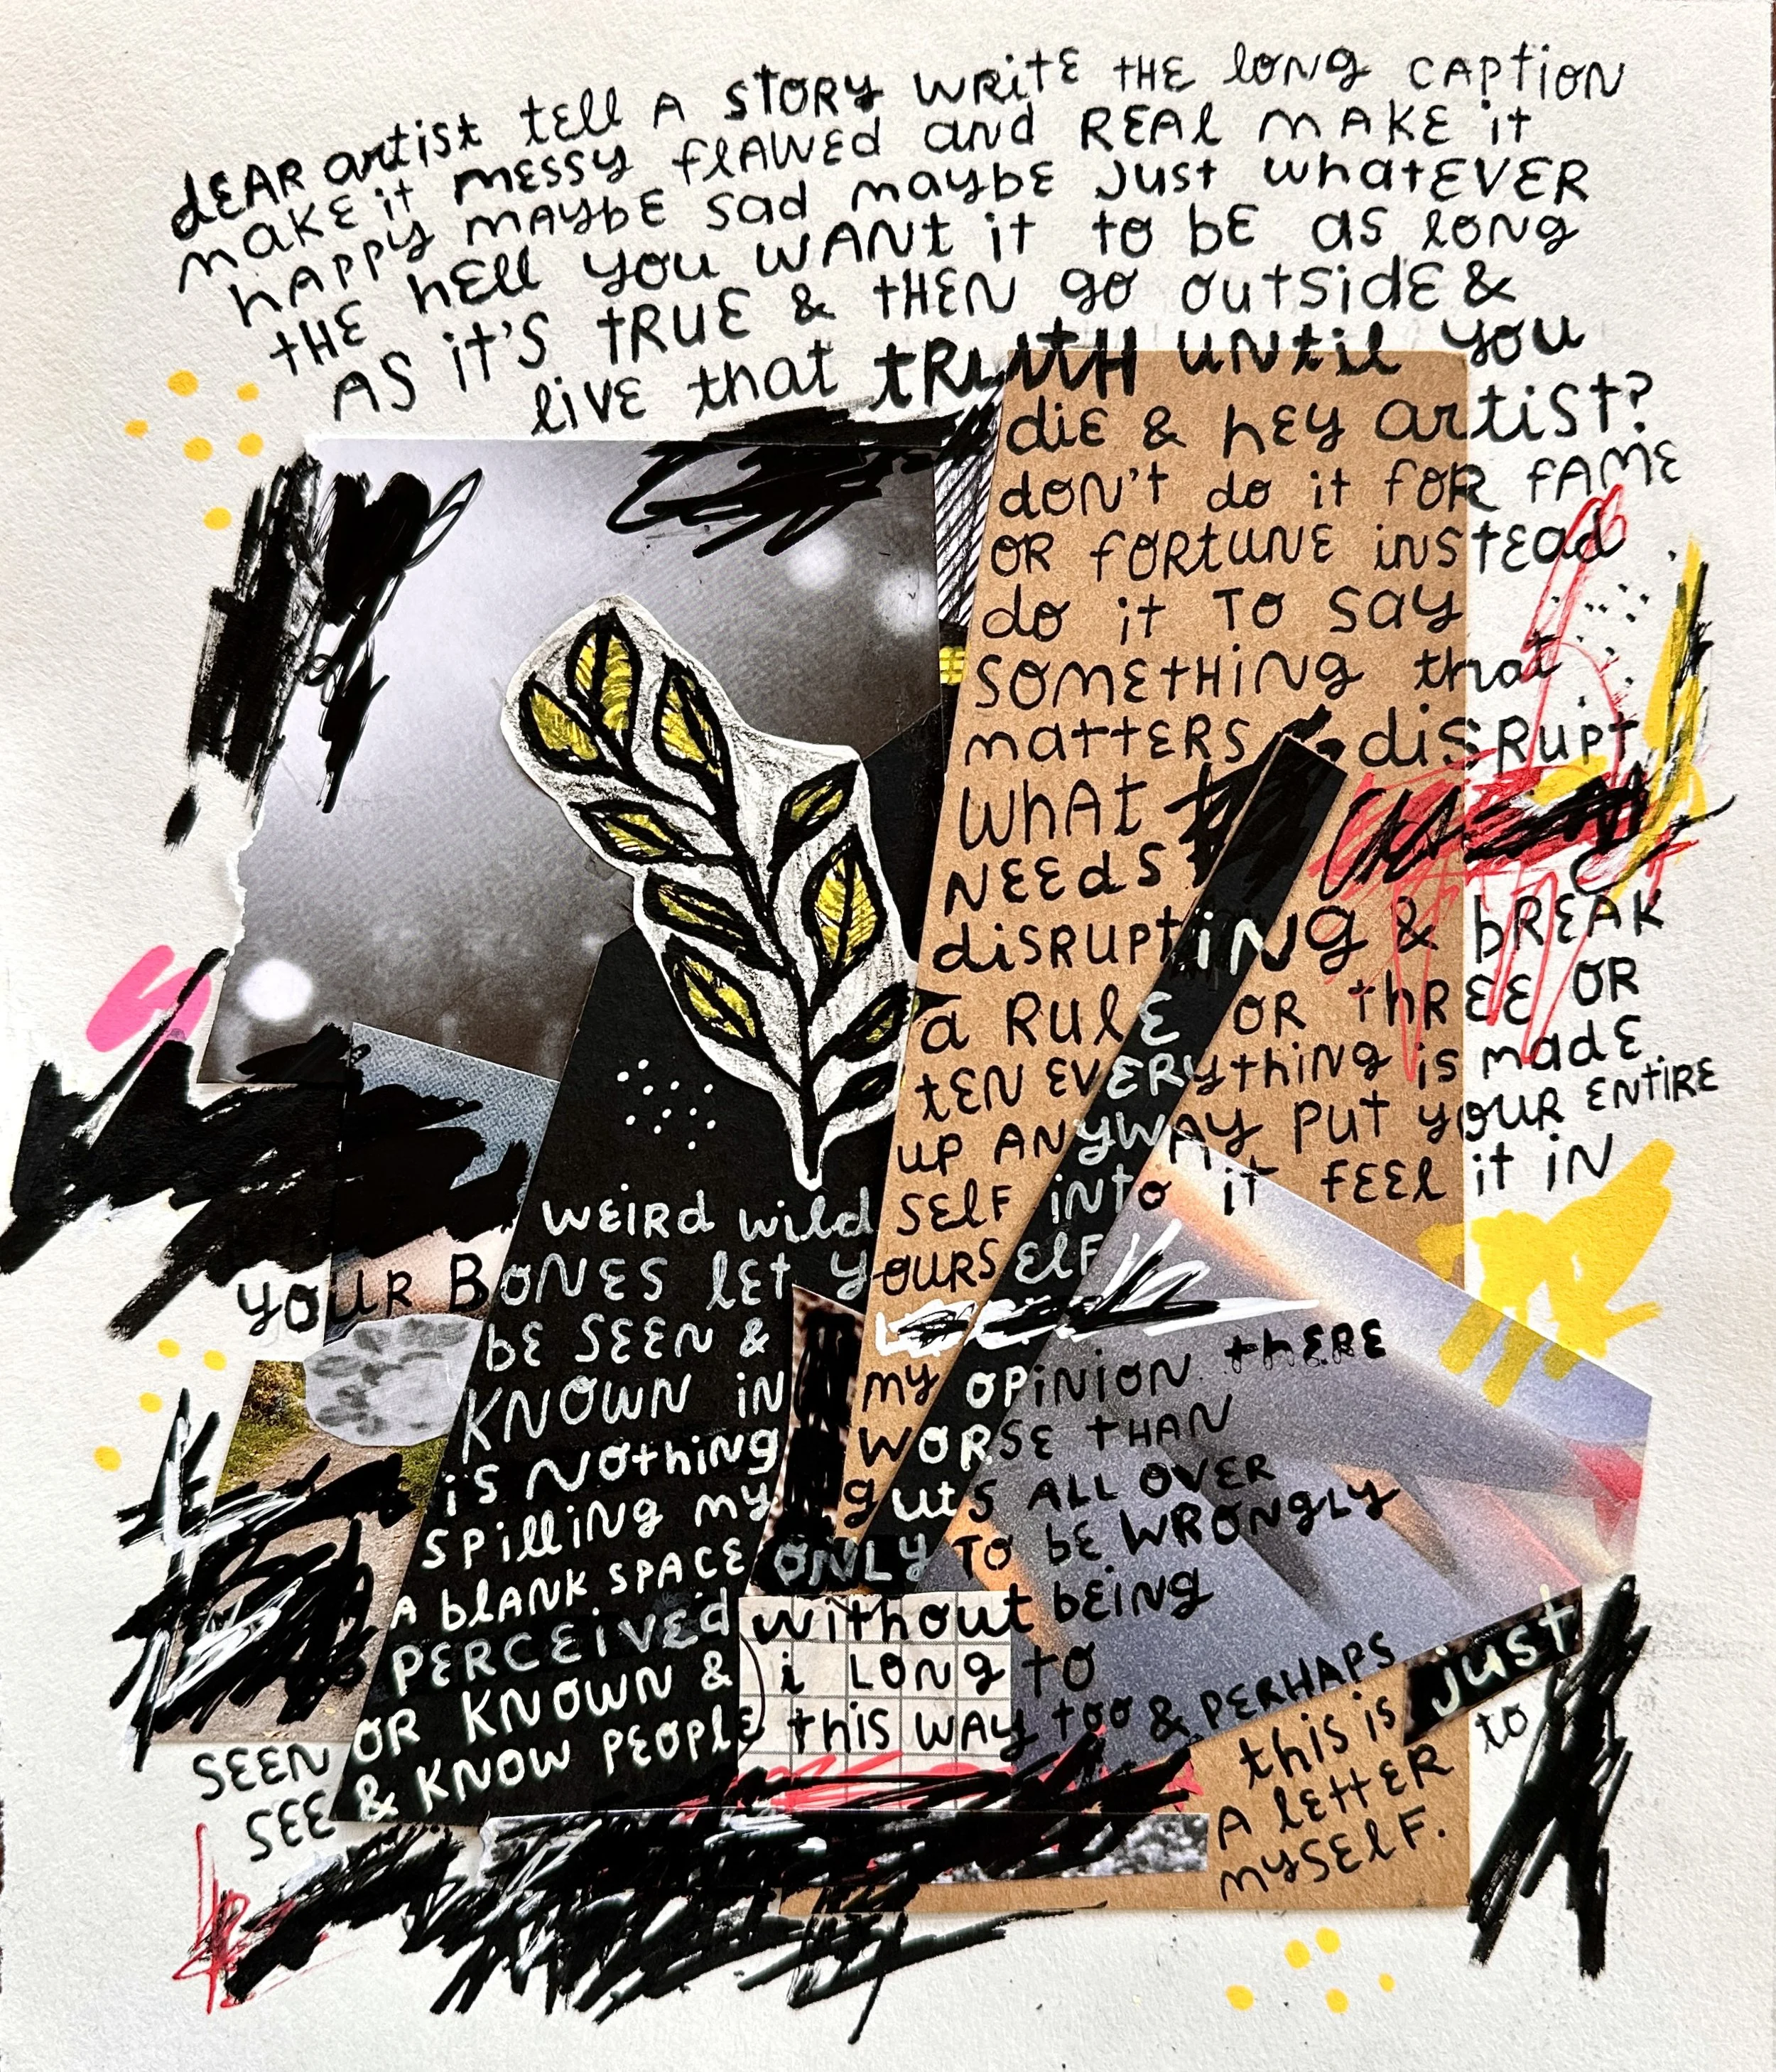 dEAR artist tell A STORY WRITE THE long CAPTION
make it messy flAWEd and REAl MAKE it
HAPPY MAYBE sad maybe just whatEVER
THE hEll you WANT it to bE as long
AS it's TRUE & THEN go outside &
livE that tRUTH until you
diE & hEy artist?
don't do it for fAME
OR fortune instead
do it to say
something that
matters & disrupt
What
NEEds
disrupting & bREAK
a RulE OR thREE OR
tEN EVERything is made
up ANYWAY put your ENTIRE
WEIRd wild SElf into it fEEl it iN
your BONES lEt yoursElf
bE SEEN &
KNOWN iN my opinion thERE
is Nothing WORSE THAN
spilling my guts ALL OVER
A blANK SPACE ONLY TO bE WRONGLY
PERCEivEd without bEiNg
SEEN OR KNOWN & i LONg to
SEE & KNOW PEOPlE this WAY too & PERHAPS
this is just
A lEttER to
mysElf.